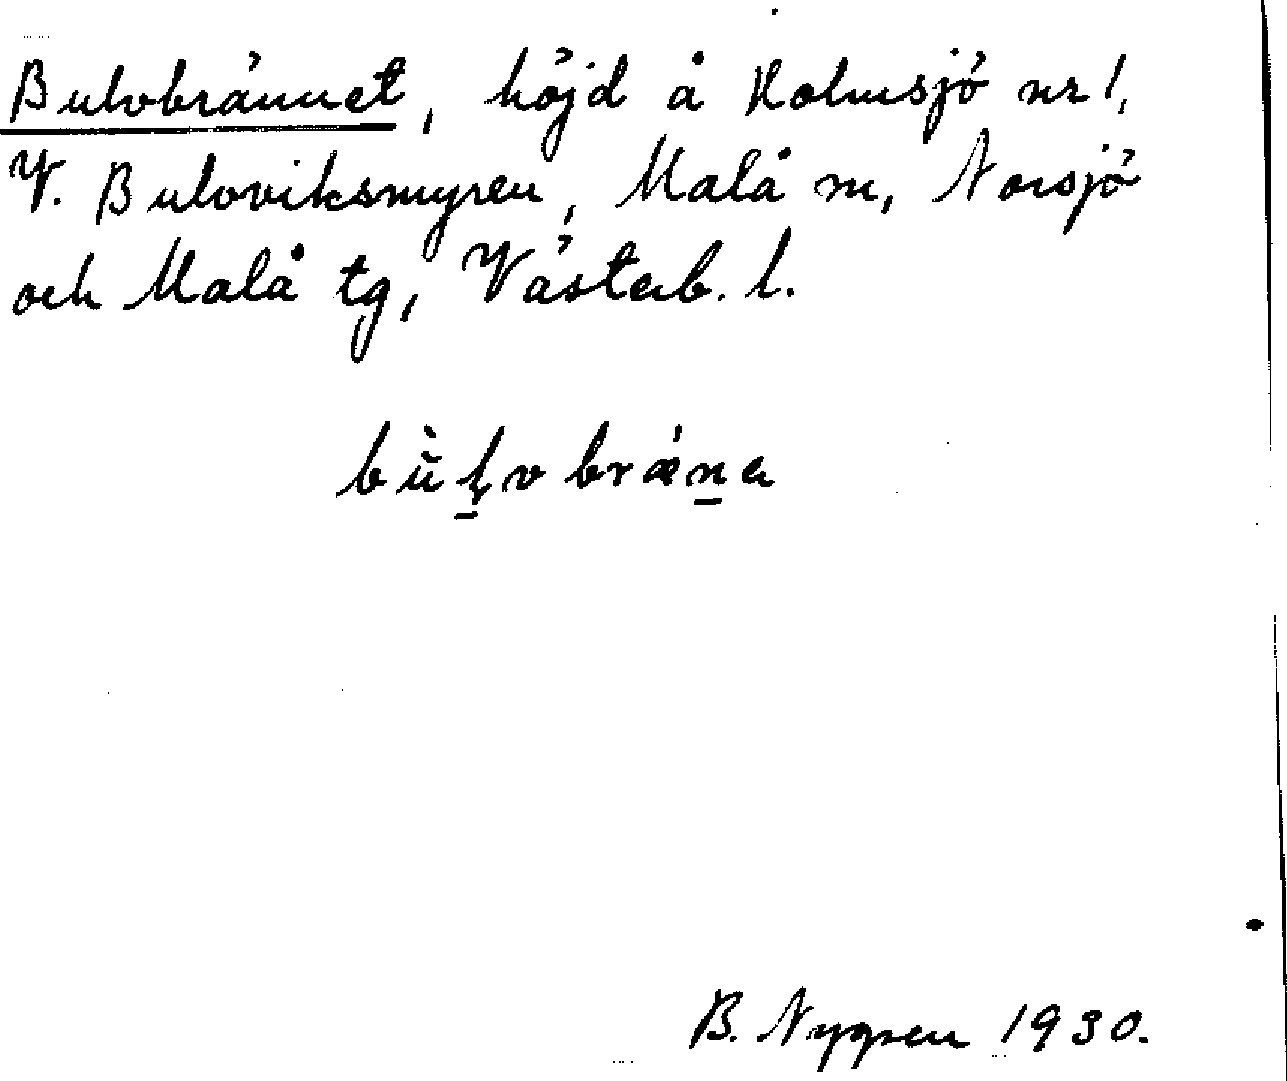 Bulvbrännet, höjd å Holmsjö nr 1,
V. Bulvviksmyren, Malå sn, Norsjö
och Malå tg, Västerb. l.
bù̀ḷvbrǽṉa
B. Nygren 1930.